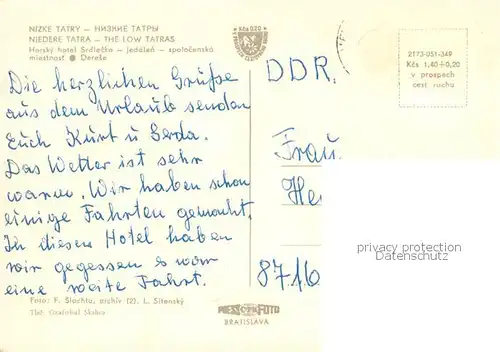 NÍZKE TATRY — НИЗКИЕ ТАТРЫ
NIEDERE TATRA — THE LOW TATRAS
Horský hotel Srdiečko — jedáleň — spoločenská
miestnosť ● Dereše
Kčs 0,20
2173-051-349
Kčs 1,40+0,20
v prospech
cest. ruchu
DDR.
Die herzlichen Grüße
aus dem Urlaub senden
Euch Kurt u Gerda.
Das Wetter ist sehr
warm. Wir haben schon
einige Fahrten gemacht.
In diesen Hotel haben
wir gegessen s war
eine weite Fahrt.
Frau.
He
8716
privacy protection
Foto: F. Šlachta, archív (2), L. Sitenský
Tlč. Grafobal Skalica
PRESSFOTO
BRATISLAVA